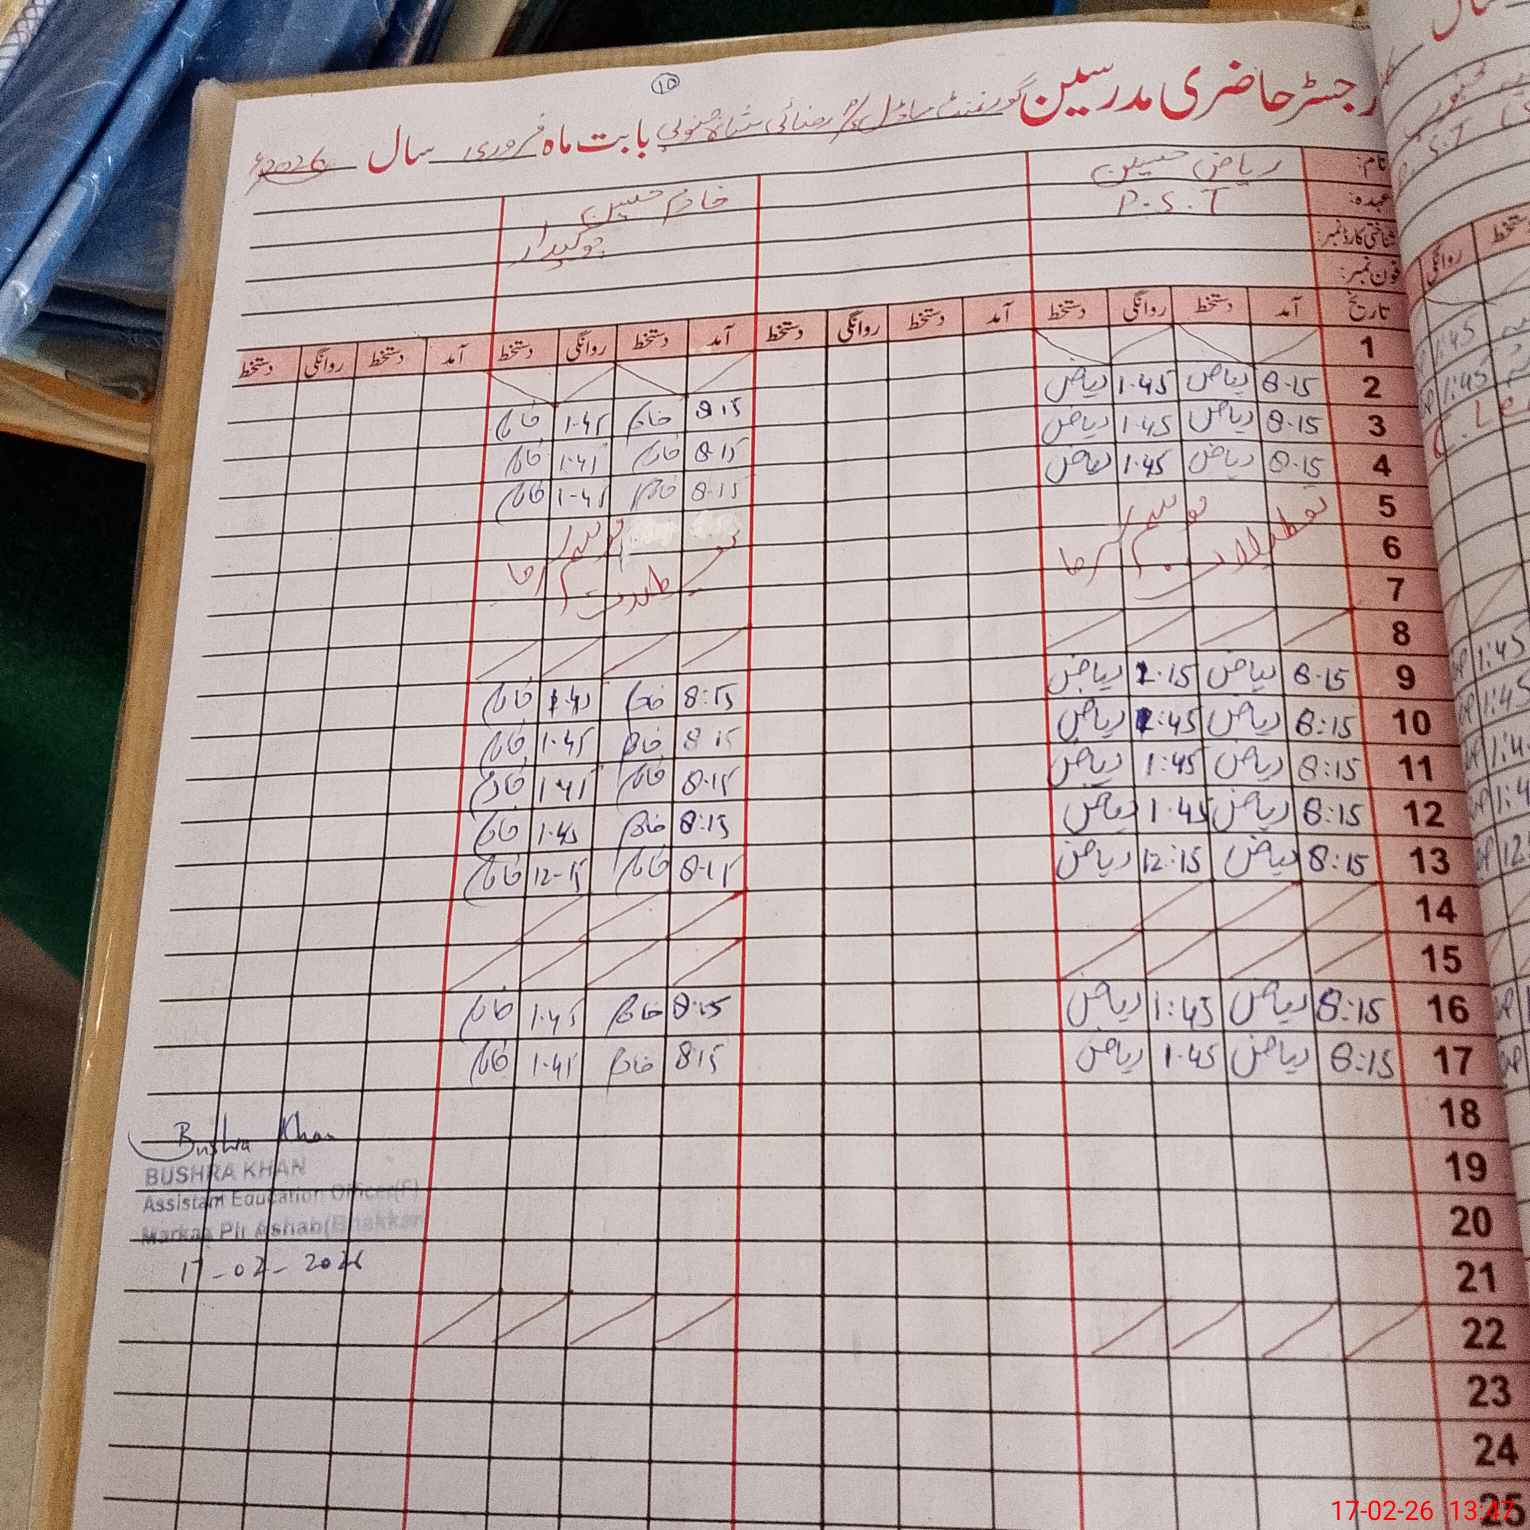 10
رجسٹر حاضری مدرسین گورنمنٹ ماڈل بابت ماہ فروری سال 2026ء
نام: ریاض حسین خادم حسین
عہدہ: P.S.T چوکیدار
شناختی کارڈ نمبر:
فون نمبر:
تاریخ آمد دستخط روانگی دستخط آمد دستخط روانگی دستخط آمد دستخط روانگی دستخط آمد دستخط روانگی دستخط
1
2 8.15 ریاض 1.45 ریاض 8.15 خادم 1.45 خادم
3 8.15 ریاض 1.45 ریاض 8.15 خادم 1.45 خادم
4 8.15 ریاض 1.45 ریاض 8.15 خادم 1-45 خادم
5
6 تعطیلات موسم سرما
7
8
9 8.15 ریاض ریاض 8:15 خادم 1.45 خادم
10 8:15 ریاض 1:45 ریاض 8 15 خادم 1.45 خادم
11 8:15 ریاض 1:45 ریاض 8.15 خادم 1.45 خادم
12 8:15 ریاض 1.45 ریاض 8:15 خادم 1.45 خادم
13 8:15 ریاض 12:15 ریاض 8.15 خادم 12-15 خادم
14
15
16 8:15 ریاض 1:45 ریاض 8:15 خادم 1.45 خادم
17 8:15 ریاض 1.45 ریاض 8:15 خادم 1.45 خادم
18
19
20
21
22
23
24
25
Bushra Khan
BUSHRA KHAN
Assistant Education Officer(F)
Markaz Pir Ashab(Bhakkar)
17-02-2026
17-02-26 13:47